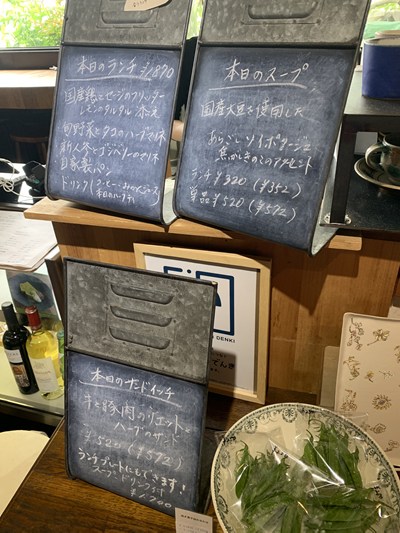 本日のランチ ¥1,890
国産鶏とセージのフリッター
レモンタルタル添え
旬野菜とタコのハーブマリネ
新人参とゴジベリーのマリネ
自家製パン
ドリンク(コーヒー・
本日のスープ
国産大豆を使用した
あらごしソイポタージュ
焦がしきのこのアクセント
ランチ ¥320 (¥352)
単品 ¥520 (¥572)
DENKI
でんき
本日のサンドイッチ
牛と豚肉のリエットと
ハーブのサンド
¥520 (¥572)
ランチプレートにもできます!
スープ ドリンク付
¥1,700